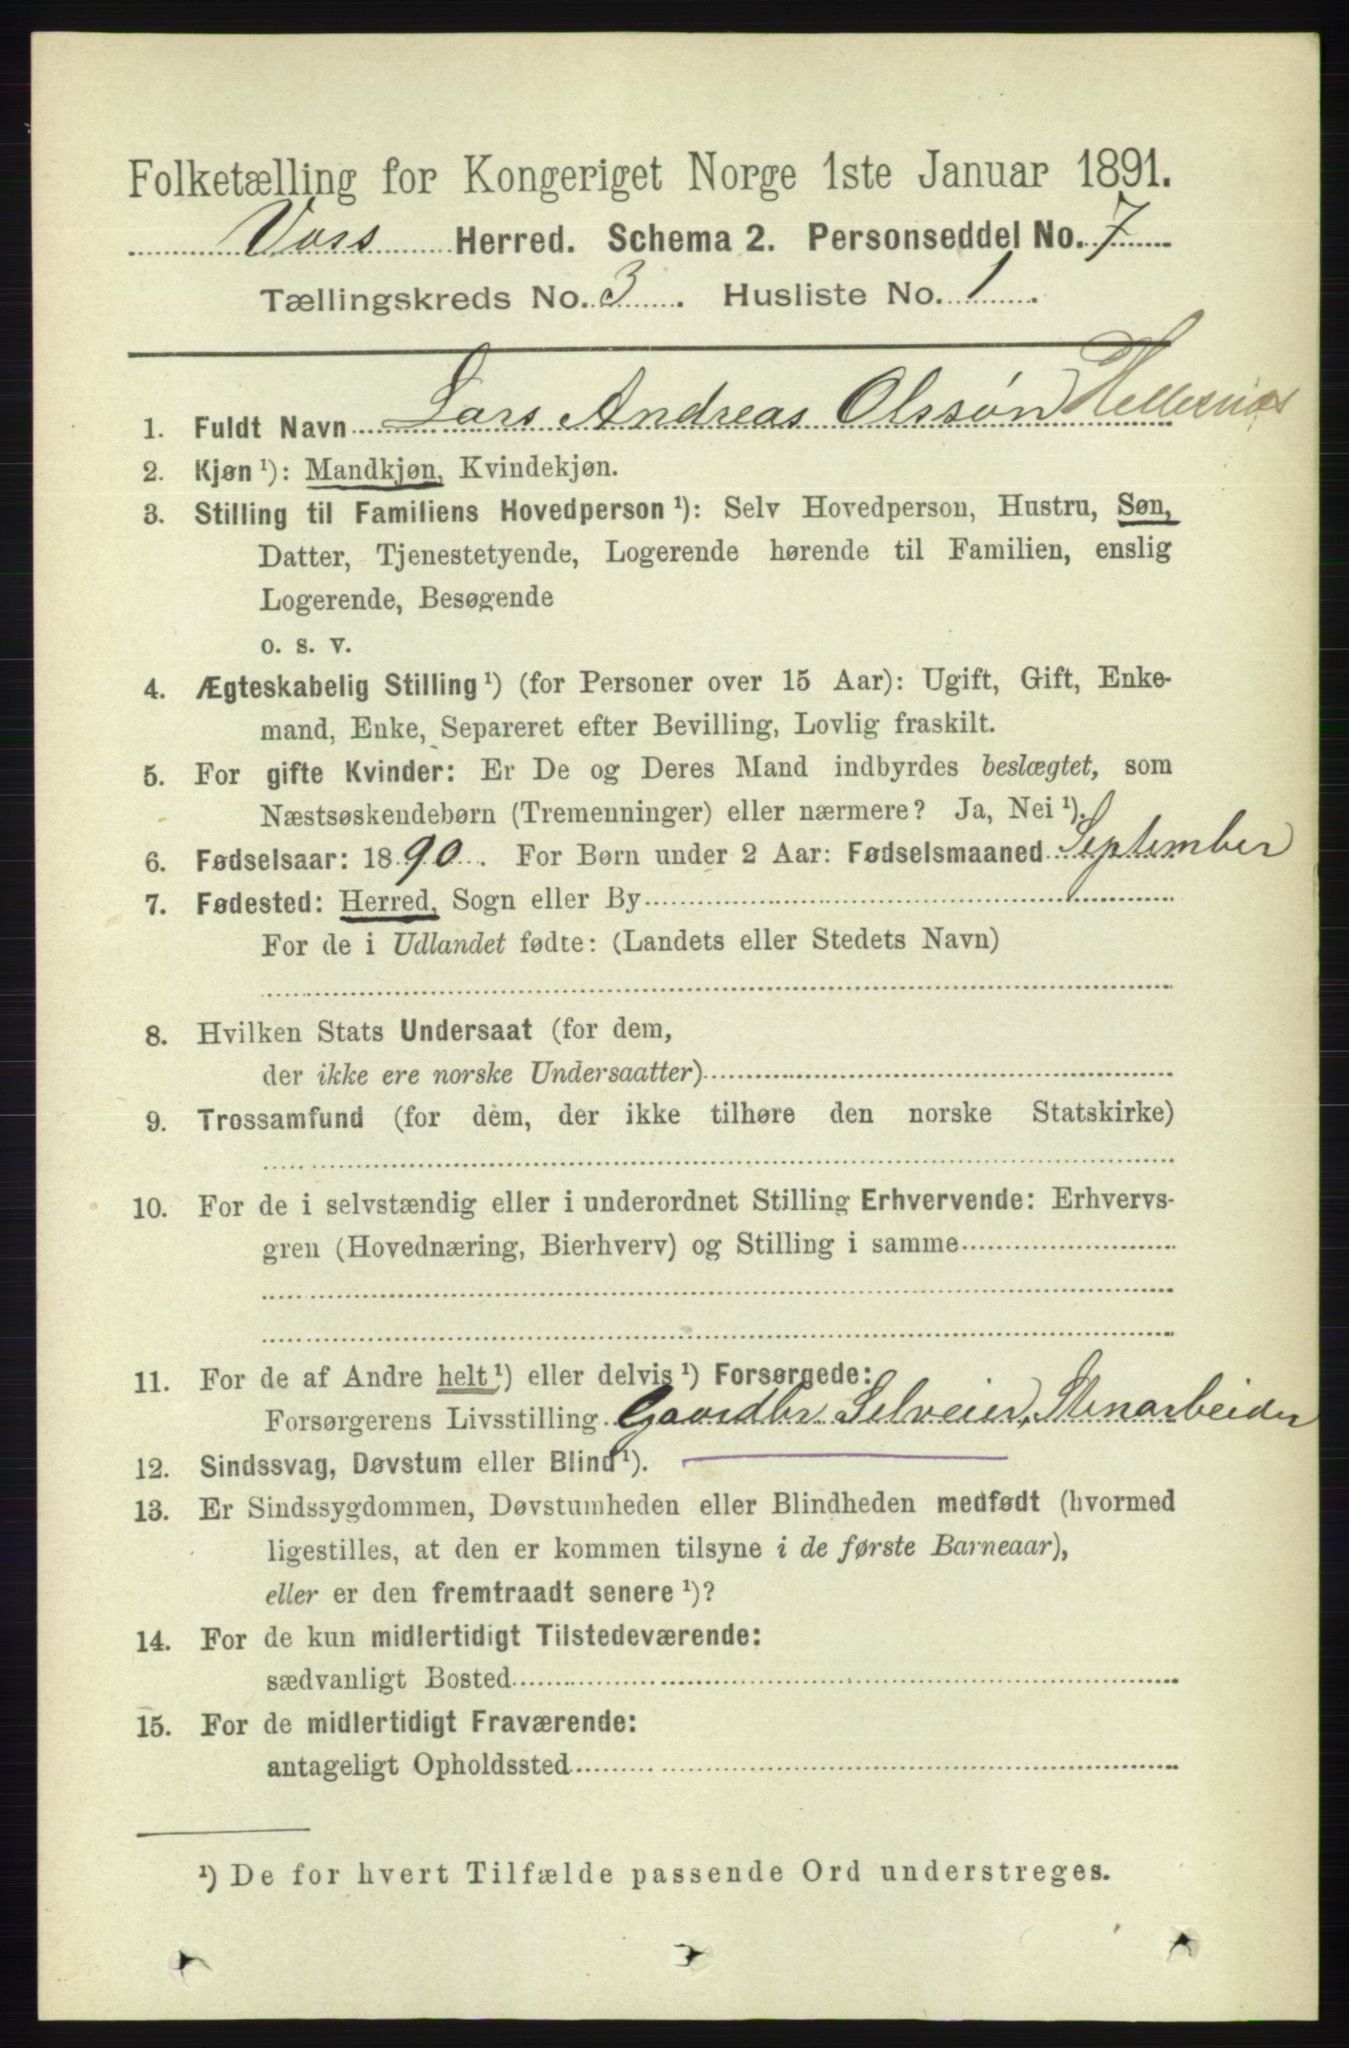 Folketælling for Kongeriget Norge 1ste Januar 1891.
Voss Herred. Schema 2. Personseddel No. 7
Tællingskreds No. 3. Husliste No. 1.
1. Fuldt Navn Lars Andreas Olssøn Hellesnæs
2. Kjøn ¹): Mandkjøn, Kvindekjøn.
3. Stilling til Familiens Hovedperson ¹): Selv Hovedperson, Hustru, Søn,
Datter, Tjenestetyende, Logerende hørende til Familien, enslig
Logerende, Besøgende
o. s. v.
4. Ægteskabelig Stilling ¹) (for Personer over 15 Aar): Ugift, Gift, Enke-
mand, Enke, Separeret efter Bevilling, Lovlig fraskilt.
5. For gifte Kvinder: Er De og Deres Mand indbyrdes beslægtet, som
Næstsøskendebørn (Tremenninger) eller nærmere? Ja, Nei ¹).
6. Fødselsaar: 1890. For Børn under 2 Aar: Fødselsmaaned September
7. Fødested: Herred, Sogn eller By
For de i Udlandet fødte: (Landets eller Stedets Navn)
8. Hvilken Stats Undersaat (for dem,
der ikke ere norske Undersaatter)
9. Trossamfund (for dem, der ikke tilhøre den norske Statskirke)
10. For de i selvstændig eller i underordnet Stilling Erhvervende: Erhvervs-
gren (Hovednæring, Bierhverv) og Stilling i samme
11. For de af Andre helt ¹) eller delvis ¹) Forsørgede:
Forsørgerens Livsstilling Gaardbr Selveier, Stenarbeider
12. Sindssvag, Døvstum eller Blind ¹).
13. Er Sindssygdommen, Døvstumheden eller Blindheden medfødt (hvormed
ligestilles, at den er kommen tilsyne i de første Barneaar),
eller er den fremtraadt senere ¹)?
14. For de kun midlertidigt Tilstedeværende:
sædvanligt Bosted
15. For de midlertidigt Fraværende:
antageligt Opholdssted
¹) De for hvert Tilfælde passende Ord understreges.